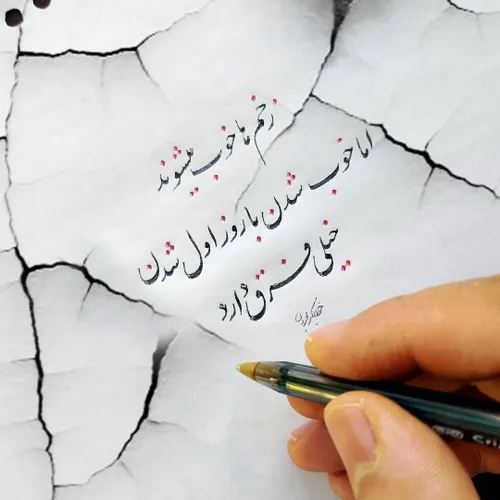 زخم ها خوب میشوند
اما خوب شدن با روز اول شدن
خیلی فرق دارد